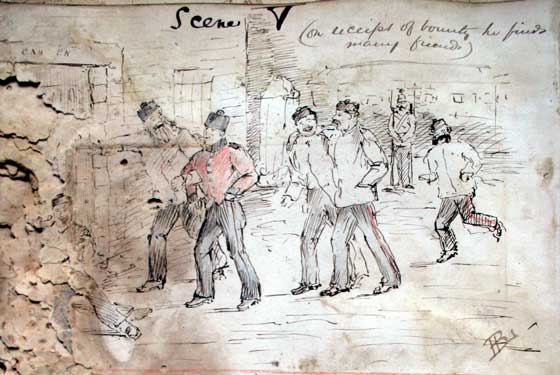 Scene V
(on receipt of bounty he finds
many friends)